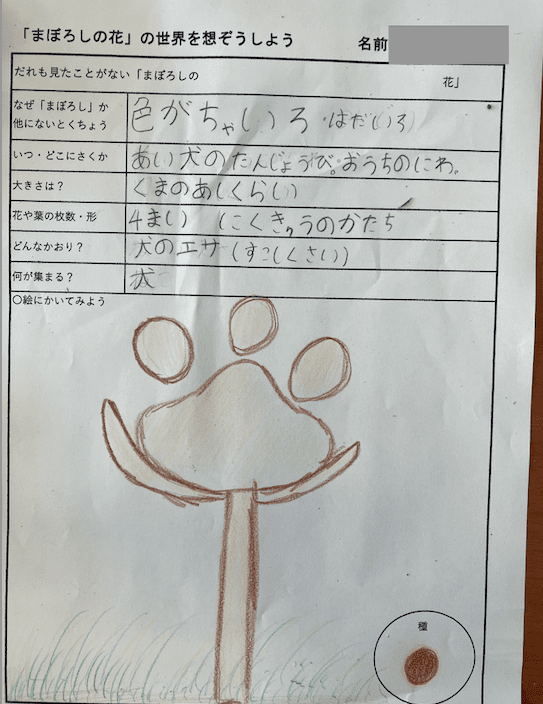 「まぼろしの花」の世界を想ぞうしよう 名前
だれも見たことがない「まぼろしの 花」
なぜ「まぼろし」か
他にないとくちょう
色がちゃいろ はだいろ
いつ・どこにさくか あい犬のたんじょうび。おうちのにわ。
大きさは? くまのあしくらい
花や葉の枚数・形 4まい にくきゅうのかたち
どんなかおり? 犬のエサ(すこしくさい)
何が集まる? 犬
〇絵にかいてみよう
種